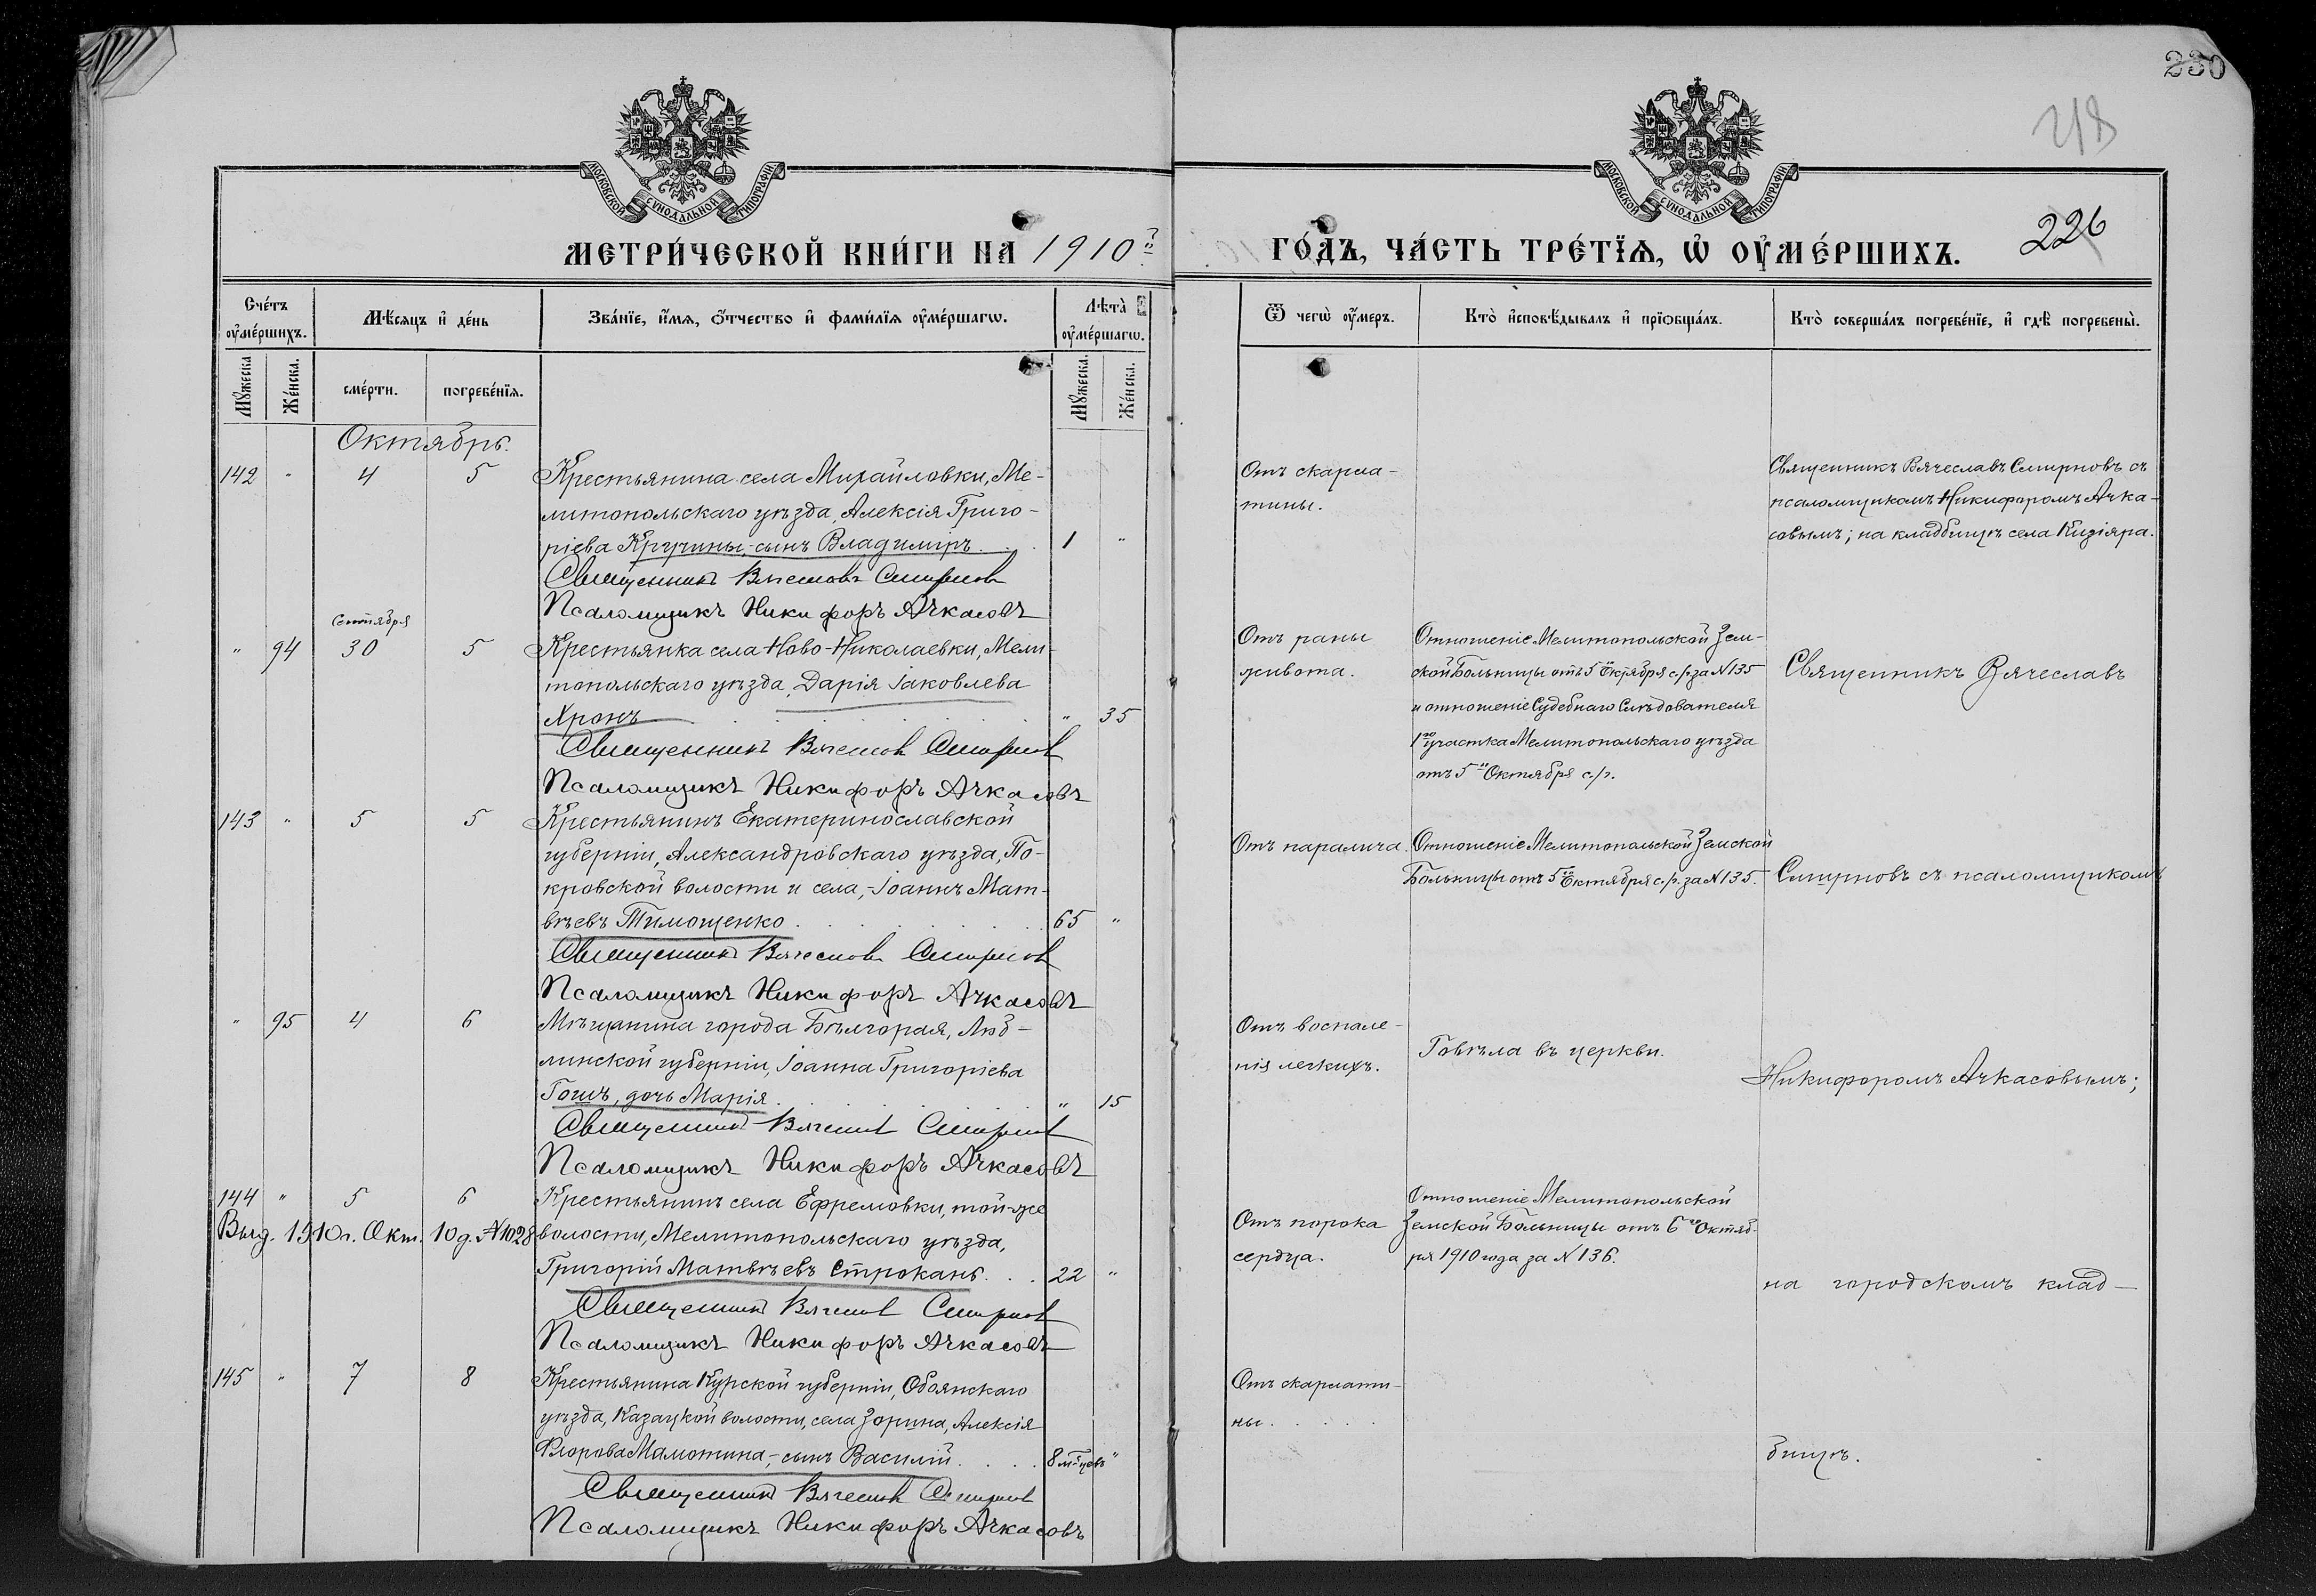 230
218
226
МОСКОВСКОЙ СѴНОДАЛЬНОЙ ТИПОГРАФІИ.
МОСКОВСКОЙ СѴНОДАЛЬНОЙ ТИПОГРАФІИ.
МЕТРИ́ЧЕСКОЙ КНИ́ГИ НА 1910й
ГО́ДЪ, ЧА́СТЬ ТРЕ́ТЇѦ, Ѡ҆ ОУ҆МЕ́РШИХЪ.
Сче́тъ оу҆ме́ршихъ.
Мꙋжеска
Же́нска.
Мѣ́сяцъ и҆ де́нь
сме́рти.
погребе́нїѧ.
Зва́нїе, и҆́мѧ, ѻ҆́тчество и҆ фами́лїѧ оу҆ме́ршагѡ.
Лѣта̀ оу҆ме́ршагѡ.
Мꙋжеска.
Же́нска.
Ѿ чегѡ̀ оу҆́меръ.
Кто̀ и҆сповѣ́дывалъ и҆ прїѻбща́лъ.
Кто̀ соверша́лъ погребе́нїе, и҆ гдѣ̀ погребены̀.
Октябрь.
142 " 4 5
Крестьянина села Михайловки, Ме-
литопольскаго уѣзда, Алексія Григо-
ріева Кручины,-сынъ Владиміръ . . 1 "
Священникъ Вячеславъ Смирновъ
Псаломщикъ Никифоръ Ачкасовъ
Отъ скарла-
тины.
Священникъ Вячеславъ Смирновъ съ
псаломщикомъ Никифоромъ Ачка-
совымъ; на кладбищѣ села Кизіяра.
Сентября
" 94 30 5
Крестьянка села Ново-Николаевки, Мели-
топольскаго уѣзда, Дарія Іаковлева
Хронъ . . . . . . . " 35
Священникъ Вячеславъ Смирновъ
Псаломщикъ Никифоръ Ачкасовъ
Отъ раны
живота.
Отношеніе Мелитопольской Зем-
ской Больницы отъ 5го Октября с./г. за N 135
и отношеніе Судебнаго Слѣдователя
1го участка Мелитопольскаго уѣзда
отъ 5го Октября с./г.
Священникъ Вячеславъ
143 " 5 5
Крестьянинъ Екатеринославской
губерніи, Александровскаго уѣзда, По-
кровской волости и села,-Іоаннъ Мат-
вѣевъ Тимощенко . . . . . . . 65 "
Священникъ Вячеславъ Смирновъ
Псаломщикъ Никифоръ Ачкасовъ
Отъ паралича.
Отношеніе Мелитопольской Земской
Больницы отъ 5го Октября с./г. за N 135.
Смирновъ съ псаломщикомъ
" 95 4 6
Мѣщанина города Бѣлгорая, Люб-
линской губерніи, Іоанна Григоріева
Гошъ, дочь Марія . . . . . . . " 15
Священникъ Вячеславъ Смирновъ
Псаломщикъ Никифоръ Ачкасовъ
Отъ воспале-
нія легкихъ.
Говѣла въ церкви.
Никифоромъ Ачкасовымъ;
144 " 5 6
Выд. 1910г. Окт. 10 д. N 1028
Крестьянинъ села Ефремовки, той-же
волости, Мелитопольскаго уѣзда,
Григорій Матвѣевъ Строкань . . . 22 "
Священникъ Вячеславъ Смирновъ
Псаломщикъ Никифоръ Ачкасовъ
Отъ порока
сердца.
Отношеніе Мелитопольской
Земской Больницы отъ 6го Октяб-
ря 1910 года за N 136.
на городскомъ клад-
145 " 7 8
Крестьянина Курской губерніи, Обоянскаго
уѣзда, Казацкой волости, села Зорина, Алексія
Флорова Мамошина,-сынъ Василій . . . . 8 м-цевъ "
Священникъ Вячеславъ Смирновъ
Псаломщикъ Никифоръ Ачкасовъ
Отъ скарлати-
ны . . . . .
бищѣ.